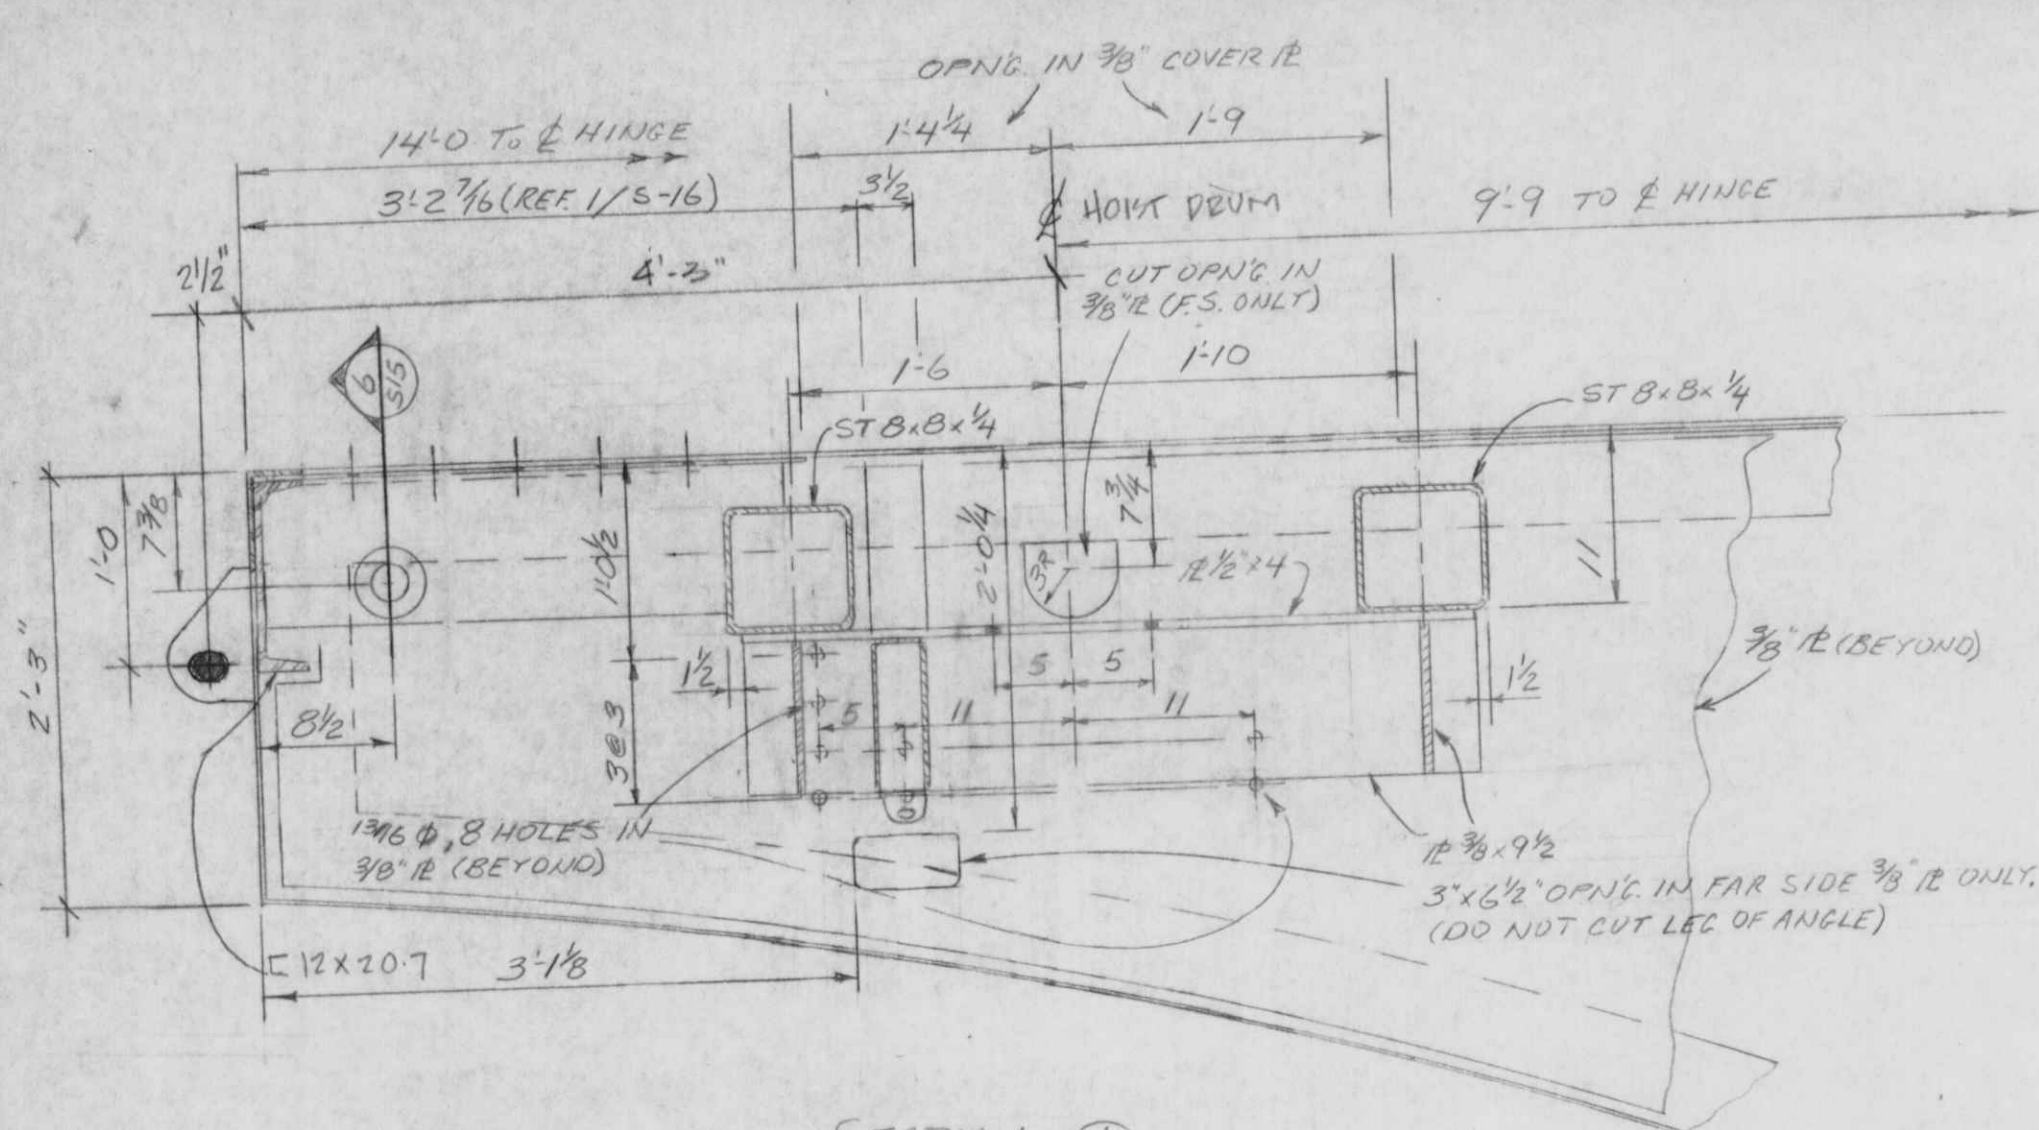 OPN'G. IN 3/8" COVER ℄
14'-0 TO ℄ HINGE
1'-4 1/4
1'-9
3'-2 7/16 (REF. 1/S-16)
3 1/2
℄ HOIST DRUM
9'-9 TO ℄ HINGE
2 1/2"
4'-3"
CUT OPN'G. IN
3/8" PL (F.S. ONLY)
6
S15
1'-6
1'-10
ST 8x8x1/4
ST 8x8x1/4
2'-3"
1'-0
7 3/8
1'-0 1/2
2'-0 1/4
7 3/4
3R
PL 1/2"x4
11
3/8" PL (BEYOND)
8 1/2
3@3
1 1/2
5
5
1 1/2
5
11
11
13/16 ϕ, 8 HOLES IN
3/8" PL (BEYOND)
PL 3/8x9 1/2
3"x6 1/2" OPN'G. IN FAR SIDE 3/8" PL ONLY.
(DO NOT CUT LEG OF ANGLE)
[ 12X20.7
3'-1 1/8